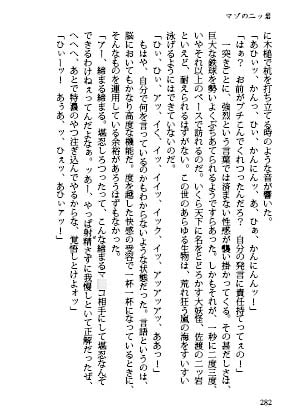 マゾの二ッ岩
に木槌で杭を打つ時のような音が響いた。
「あひィッ、かんっ、ひ、かんにんっ、あ、ひぁ、かんにんんーッ！」
「はぁ？　お前がブチこんでくれつったんだろ？　自分の発言に責任持てってぇの！」
一突きごとに、強烈という言葉では済まない性感が襲い掛かってくる。その甚だしさは、
巨大な鉄球を勢いよく打ち当てられるようですらあった。しかもそれが、一秒に二度三度、
いやそれ以上のペースで訪れるのだ。いくら天下に名をとどろかす大妖怪、佐渡の二ッ岩
といえど、耐えられるはずがない。この世のあらゆる生物は、荒れ狂う嵐の海をすいすい
泳げるようにはできていないのだ。
「ひ、ひっ、アッ、イく、イッ、イィッ、イッく、イッ、アッアッアッ、ああっ！」
もはや、自分で何を言っているのかもわからないような状態だった。言語というのは、
脳においてもかなり高度な機能だ。度を越した快感の受容で一杯一杯になっているときに、
そんなものを運用している余裕があろうはずもなかった。
「アー、締まる締まる。堪忍しろつったって、こんな締まるマ　コ相手にして堪忍なんぞ
できるわけねぇってんだよなぁ。ッあー、やっぱ射精さずに我慢しといて正解だったぜ、
へへへ、あとで特濃のやつ注ぎ込んでやるからな、覚悟しとけよオッ」
「ひぃーッ！　あぅあ、ッ、ひぇッ、あひぃアッ！」
282